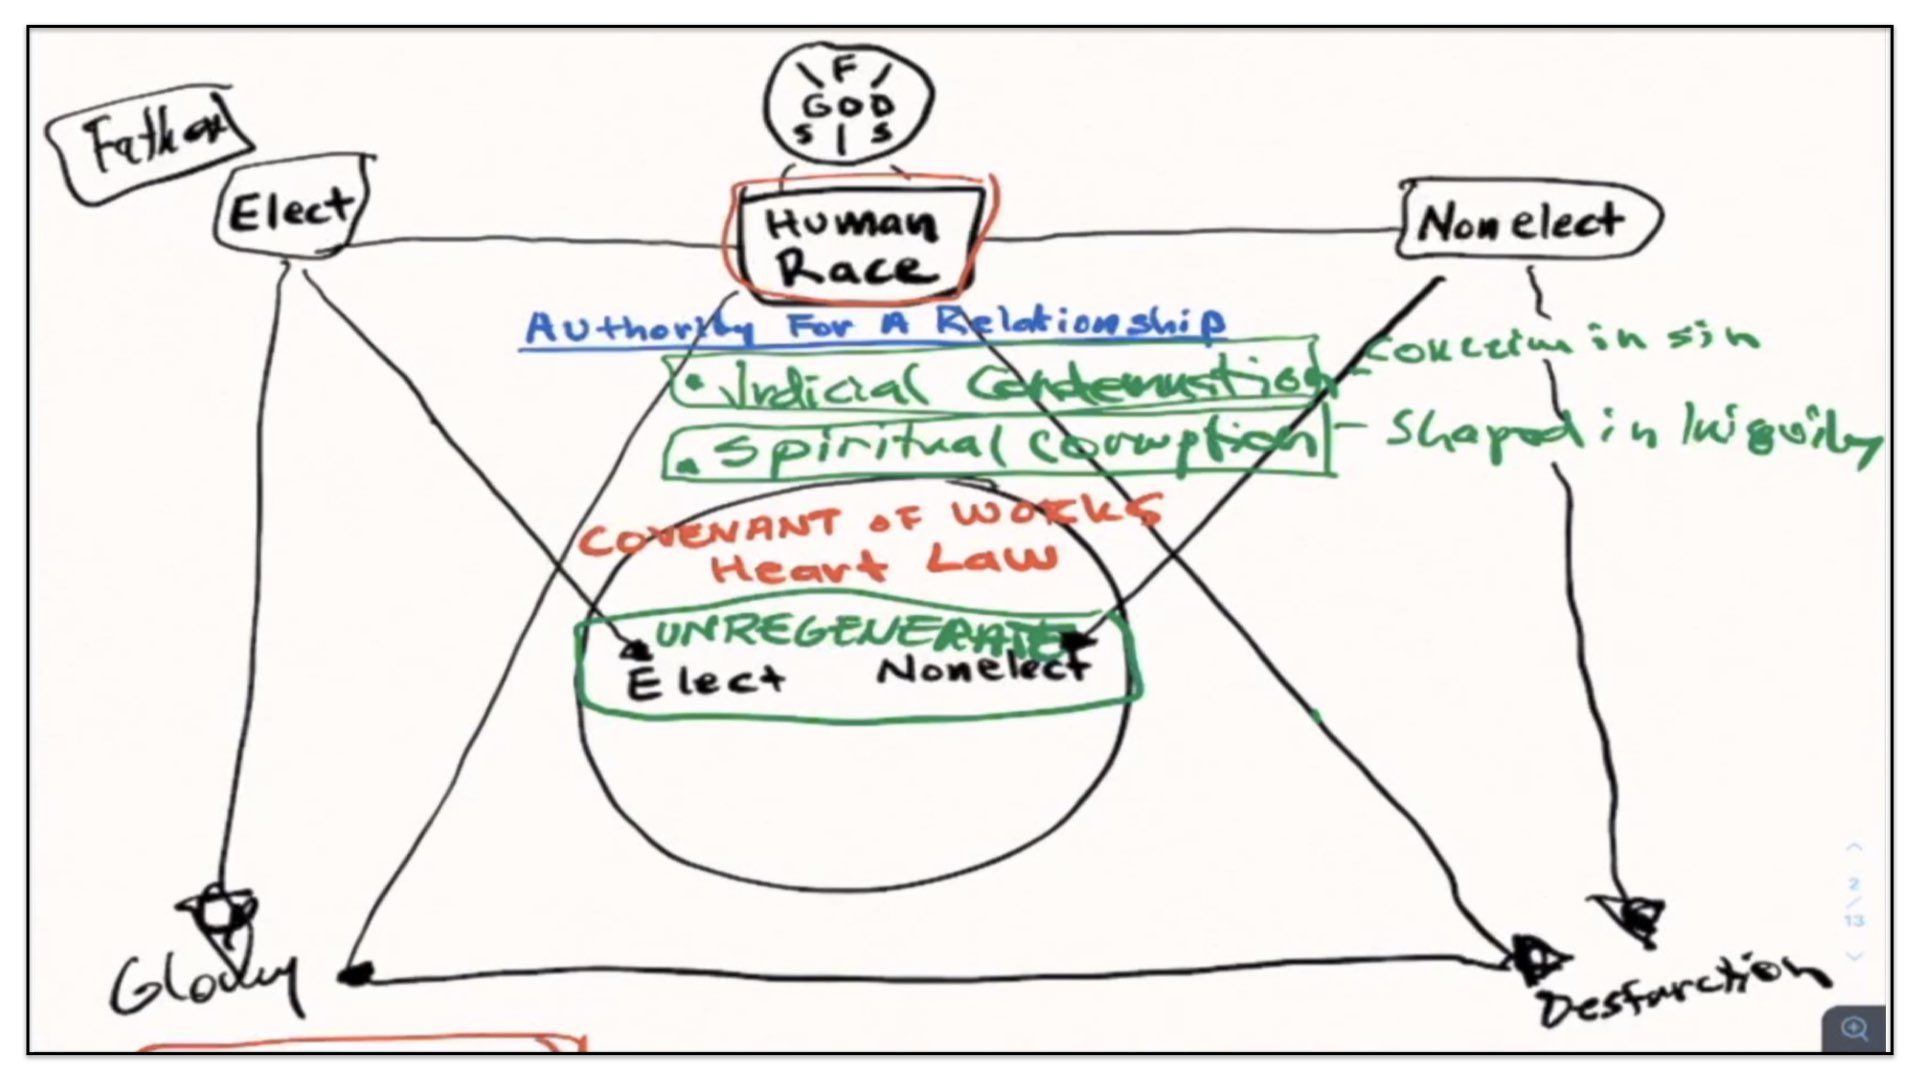 \ F /
GOD
S | S
Father
Elect
Human
Race
Nonelect
Authority For A Relationship
• Judicial Condemnation - conceive in sin
• Spiritual corruption - Shaped in Iniquity
COVENANT OF WORKS
Heart Law
UNREGENERATE
Elect Nonelect
2
/
13
Glory
Destruction